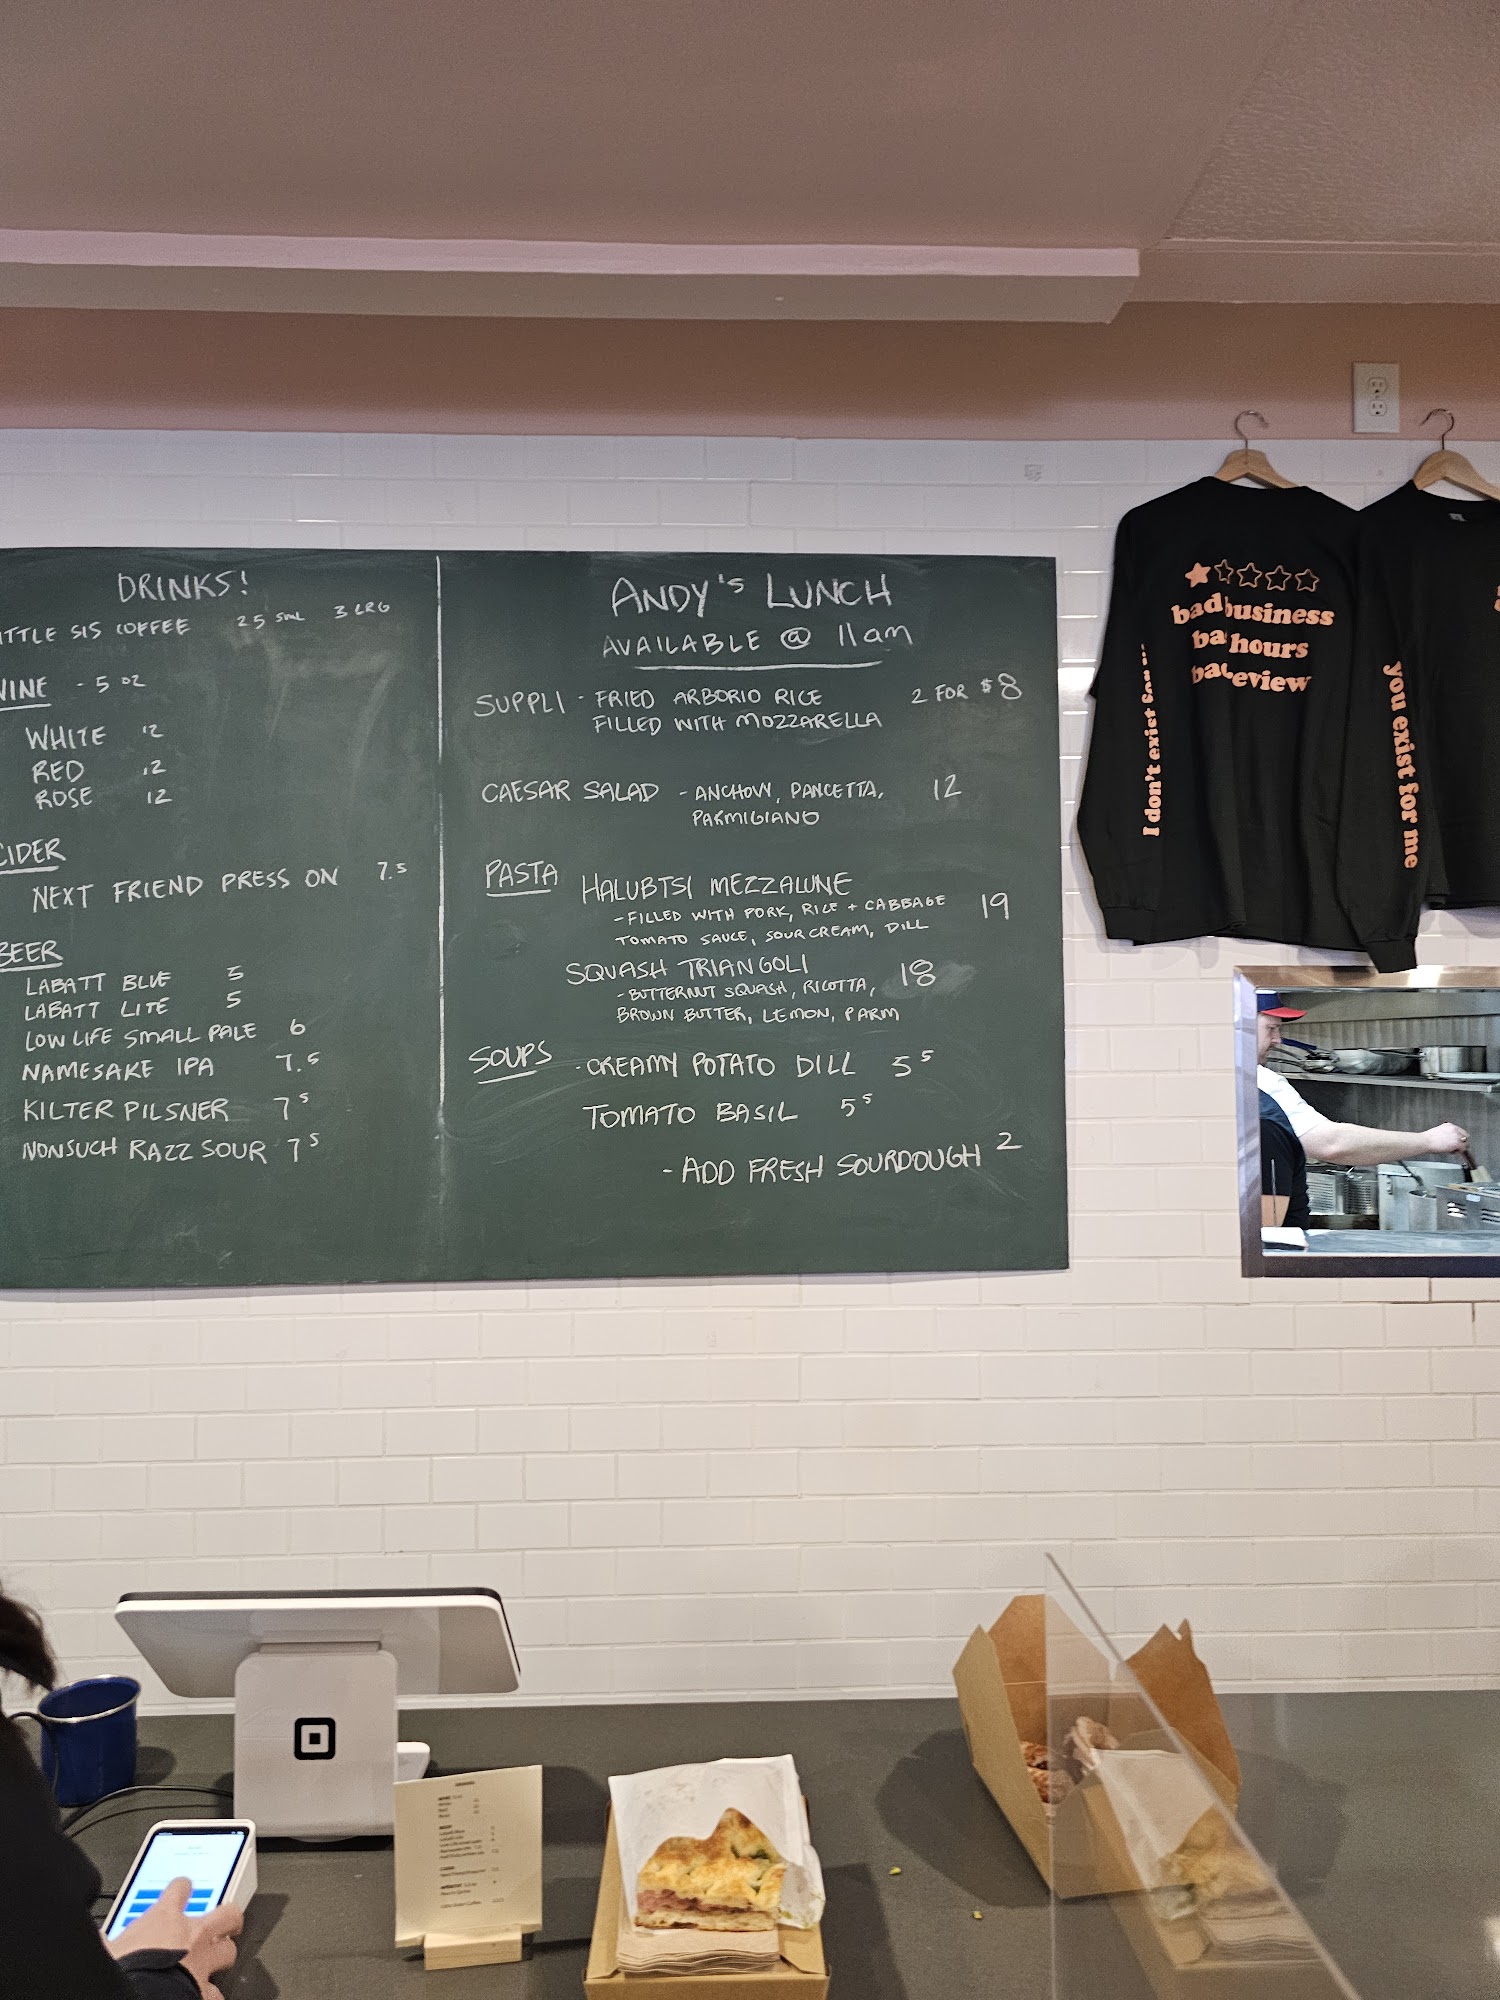 DRINKS!
ITTLE SIS COFFEE 25 SML 3 LRG
WINE - 5 OZ
WHITE 12
RED 12
ROSE 12
CIDER
NEXT FRIEND PRESS ON 7.5
BEER
LABATT BLUE 5
LABATT LITE 5
LOW LIFE SMALL PALE 6
NAMESAKE IPA 7.5
KILTER PILSNER 7 5
NONSUCH RAZZ SOUR 7 5
ANDY'S LUNCH
AVAILABLE @ 11am
SUPPLI - FRIED ARBORIO RICE 2 FOR $8
FILLED WITH MOZZARELLA
CAESAR SALAD - ANCHOVY, PANCETTA, 12
PARMIGIANO
PASTA HALUBTSI MEZZALUNE
- FILLED WITH PORK, RICE + CABBAGE 19
TOMATO SAUCE, SOUR CREAM, DILL
SQUASH TRIANGOLI 18
- BUTTERNUT SQUASH, RICOTTA,
BROWN BUTTER, LEMON, PARM
SOUPS - CREAMY POTATO DILL 5 5
TOMATO BASIL 5 5
- ADD FRESH SOURDOUGH 2
bad business
ba hours
ba eview
I don't exist
you exist for me